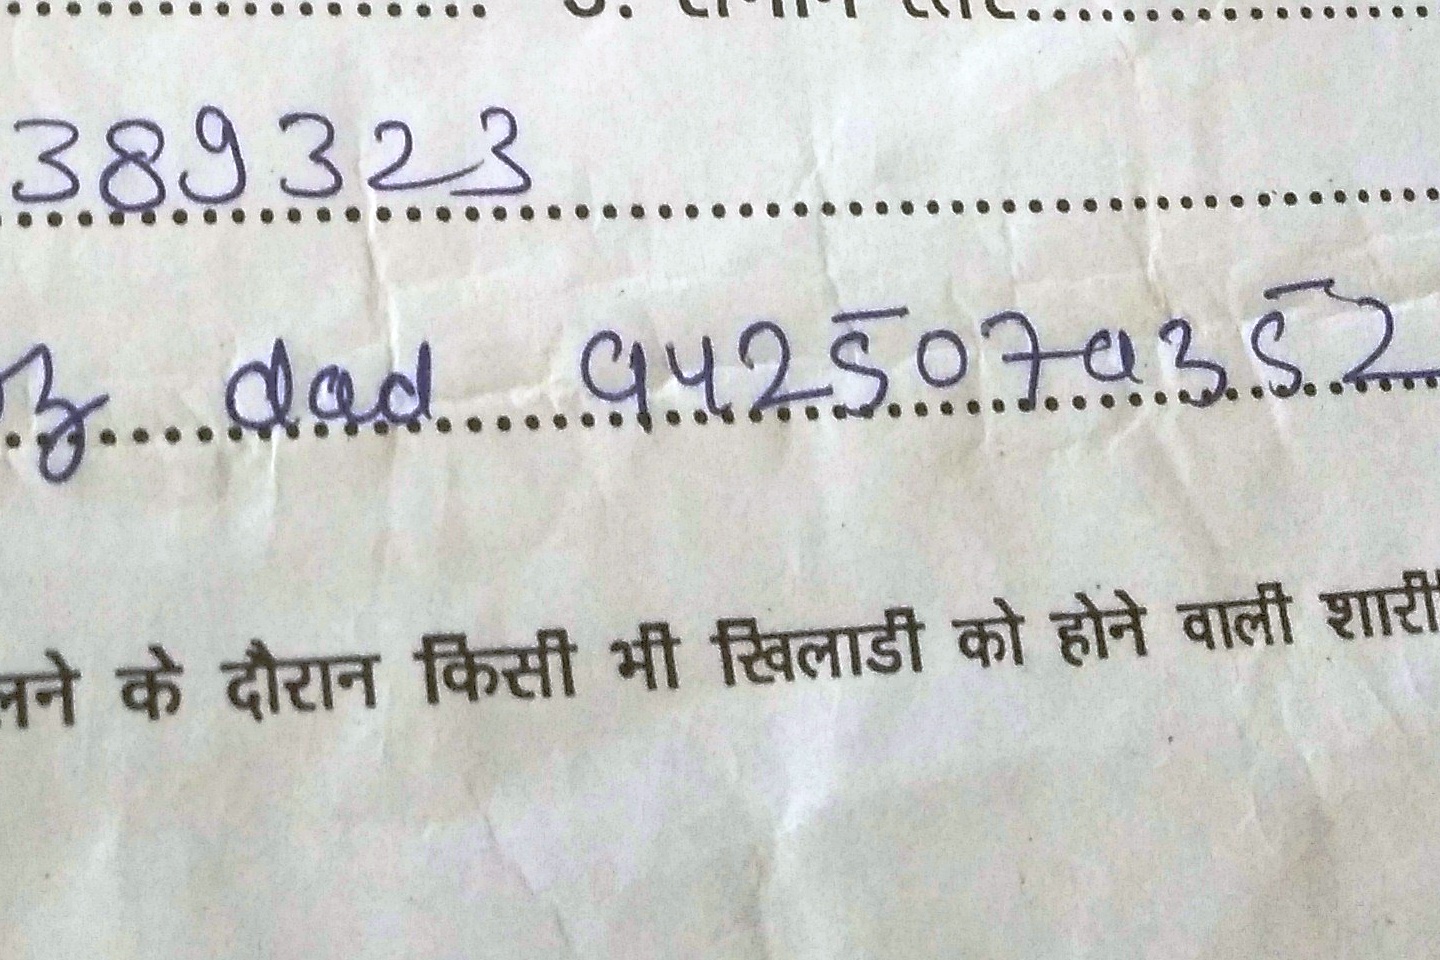 389323
of dad 9425079352
के दौरान किसी भी खिलाडी को होने वाली